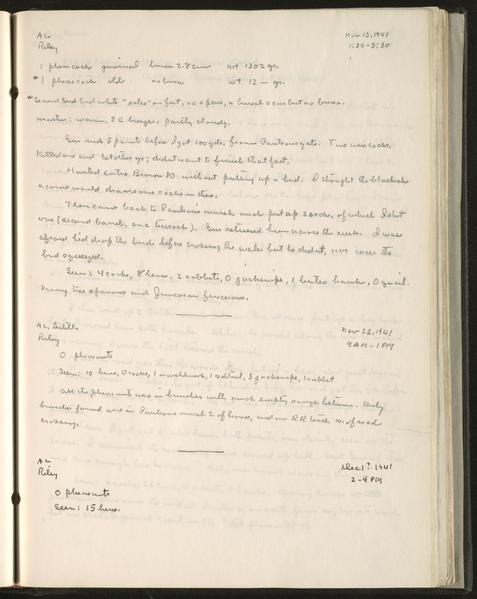 AL Nov 13, 1941
Riley 1:30-5:30
1 pheas cock juvenired bursa 2.8 cm wt 1302 gr.
*1 pheas cock old no bursa wt. 12 — gr.
*Second bird had white "soles" on feet, no spurs, a bursal scar but no bursa.
Weather: warm, SE breeze, partly cloudy.
Gus made 3 points before I got 100 yds. from Paulsons gate. Two were cocks,
killed one and let other go; didn't want to finish that fast.
Hunted entire Brown 80 without putting up a bird. I thought the blackoak
acorns would draw some cocks in there.
Then came back to Paulson's marsh and put up 2 cocks, of which I shot
one (second barrel, on a tussock). Gus retrieved him across the creek. I was
afraid he'd drop the bird before crossing the water but he didn't, nor was the
bird squeezed.
Seen: 4 cocks, 8 hens, 2 rabbits, 0 jacksnipe, 1 buteo hawk, 0 quail.
Many tree sparrows and juncos in
AL, Nov 22, 1941
Riley 9 AM - 1 PM
0 pheasants
Seen: 10 hens, 0 cocks, 1 marshhawk, 1 redtail, 3 jacksnipe, 1 rabbit
All the pheasants were in bunches with much empty range between. Only
bunches found were in Paulsons marsh & of house, and on RR track W. of road
crossing.
AL Dec 1, 1941
Riley 2-4 PM
0 pheasants
Seen: 15 hens.